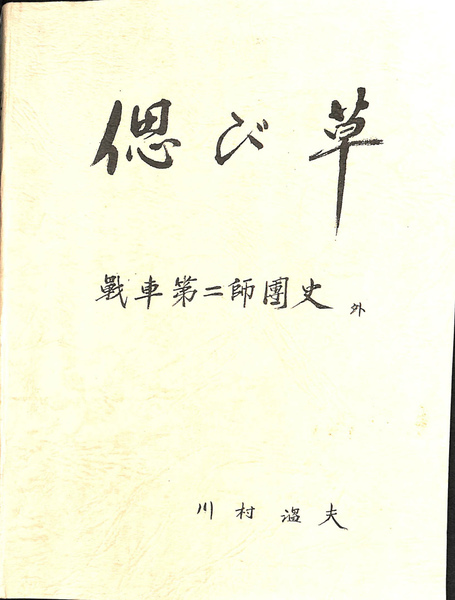 偲び草
戰車第二師團史 外
川村温夫